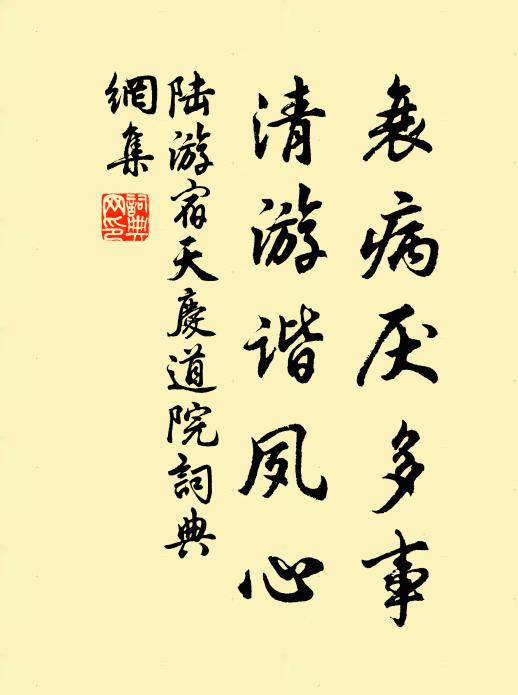 衰病厌多事
清游谐夙心
陆游宿天慶道院詞典
網集
詞典网印